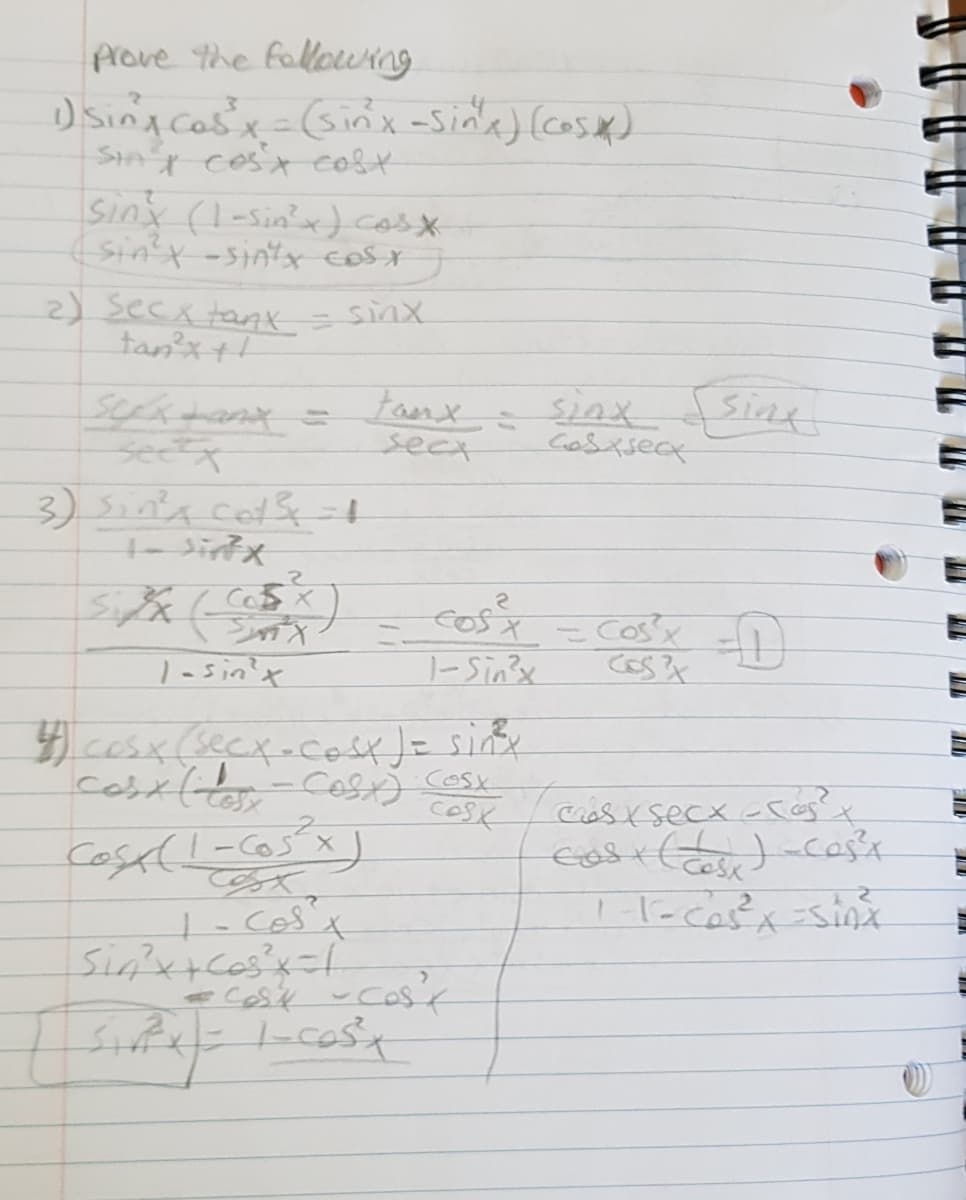 Prove the following
1) sin²x cos³x = (sin²x - sin⁴x)(cosx)
sin²x cos²x cosx
sin²x (1-sin²x) cosx
sin²x - sin⁴x cosx
2) secx tanx / tan²x + 1 = sinx
secx tanx / sec²x = tanx / secx = sinx / cosxsecx = sinx
3) sin²x cot²x / 1 - sin²x = 1
sin²x (cos²x / sin²x) / 1 - sin²x = cos²x / 1 - sin²x = cos²x / cos²x = 1
4) cosx (secx - cosx) = sin²x
cosx (1/cosx - cosx) cosx/cosx
cosx (1 - cos²x / cosx)
1 - cos²x
sin²x + cos²x = 1
- cos²x - cos²x
sin²x = 1 - cos²x
cosxsecx - cos²x
cosx (1/cosx) - cos²x
1 - cos²x = sin²x